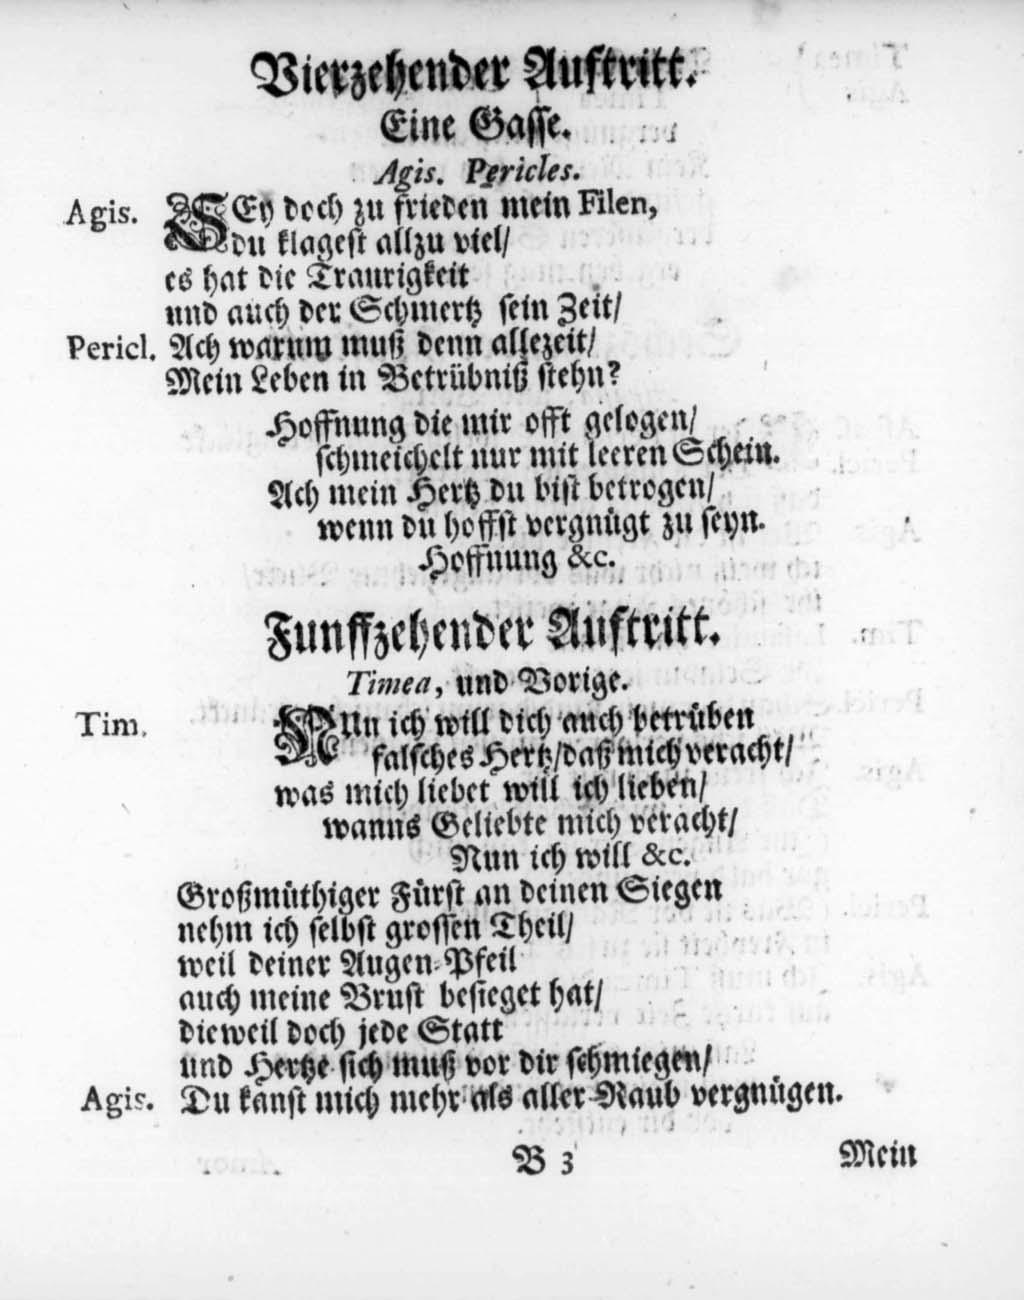 Vierzehender Auftritt.
Eine Gasse.
Agis. Pericles.
Agis. SEy doch zu frieden mein Filen,
du klagest allzu viel/
es hat die Traurigkeit
und auch der Schmertz sein Zeit/
Pericl. Ach warum muß denn allezeit/
Mein Leben in Betrübniß stehn?
Hoffnung die mir offt gelogen/
schmeichelt nur mit leeren Schein.
Ach mein Hertz du bist betrogen/
wenn du hoffst vergnügt zu seyn.
Hoffnung &c.
Funffzehender Auftritt.
Timea, und Vorige.
Tim. NUn ich will dich auch betrüben
falsches Hertz/daß mich veracht/
was mich liebet will ich lieben/
wanns Geliebte mich veracht/
Nun ich will &c.
Großmüthiger Fürst an deinen Siegen
nehm ich selbst grossen Theil/
weil deiner Augen-Pfeil
auch meine Brust besieget hat/
dieweil doch jede Statt
und Hertze sich muß vor dir schmiegen/
Agis. Du kanst mich mehr als aller Raub vergnügen.
B 3 Mein